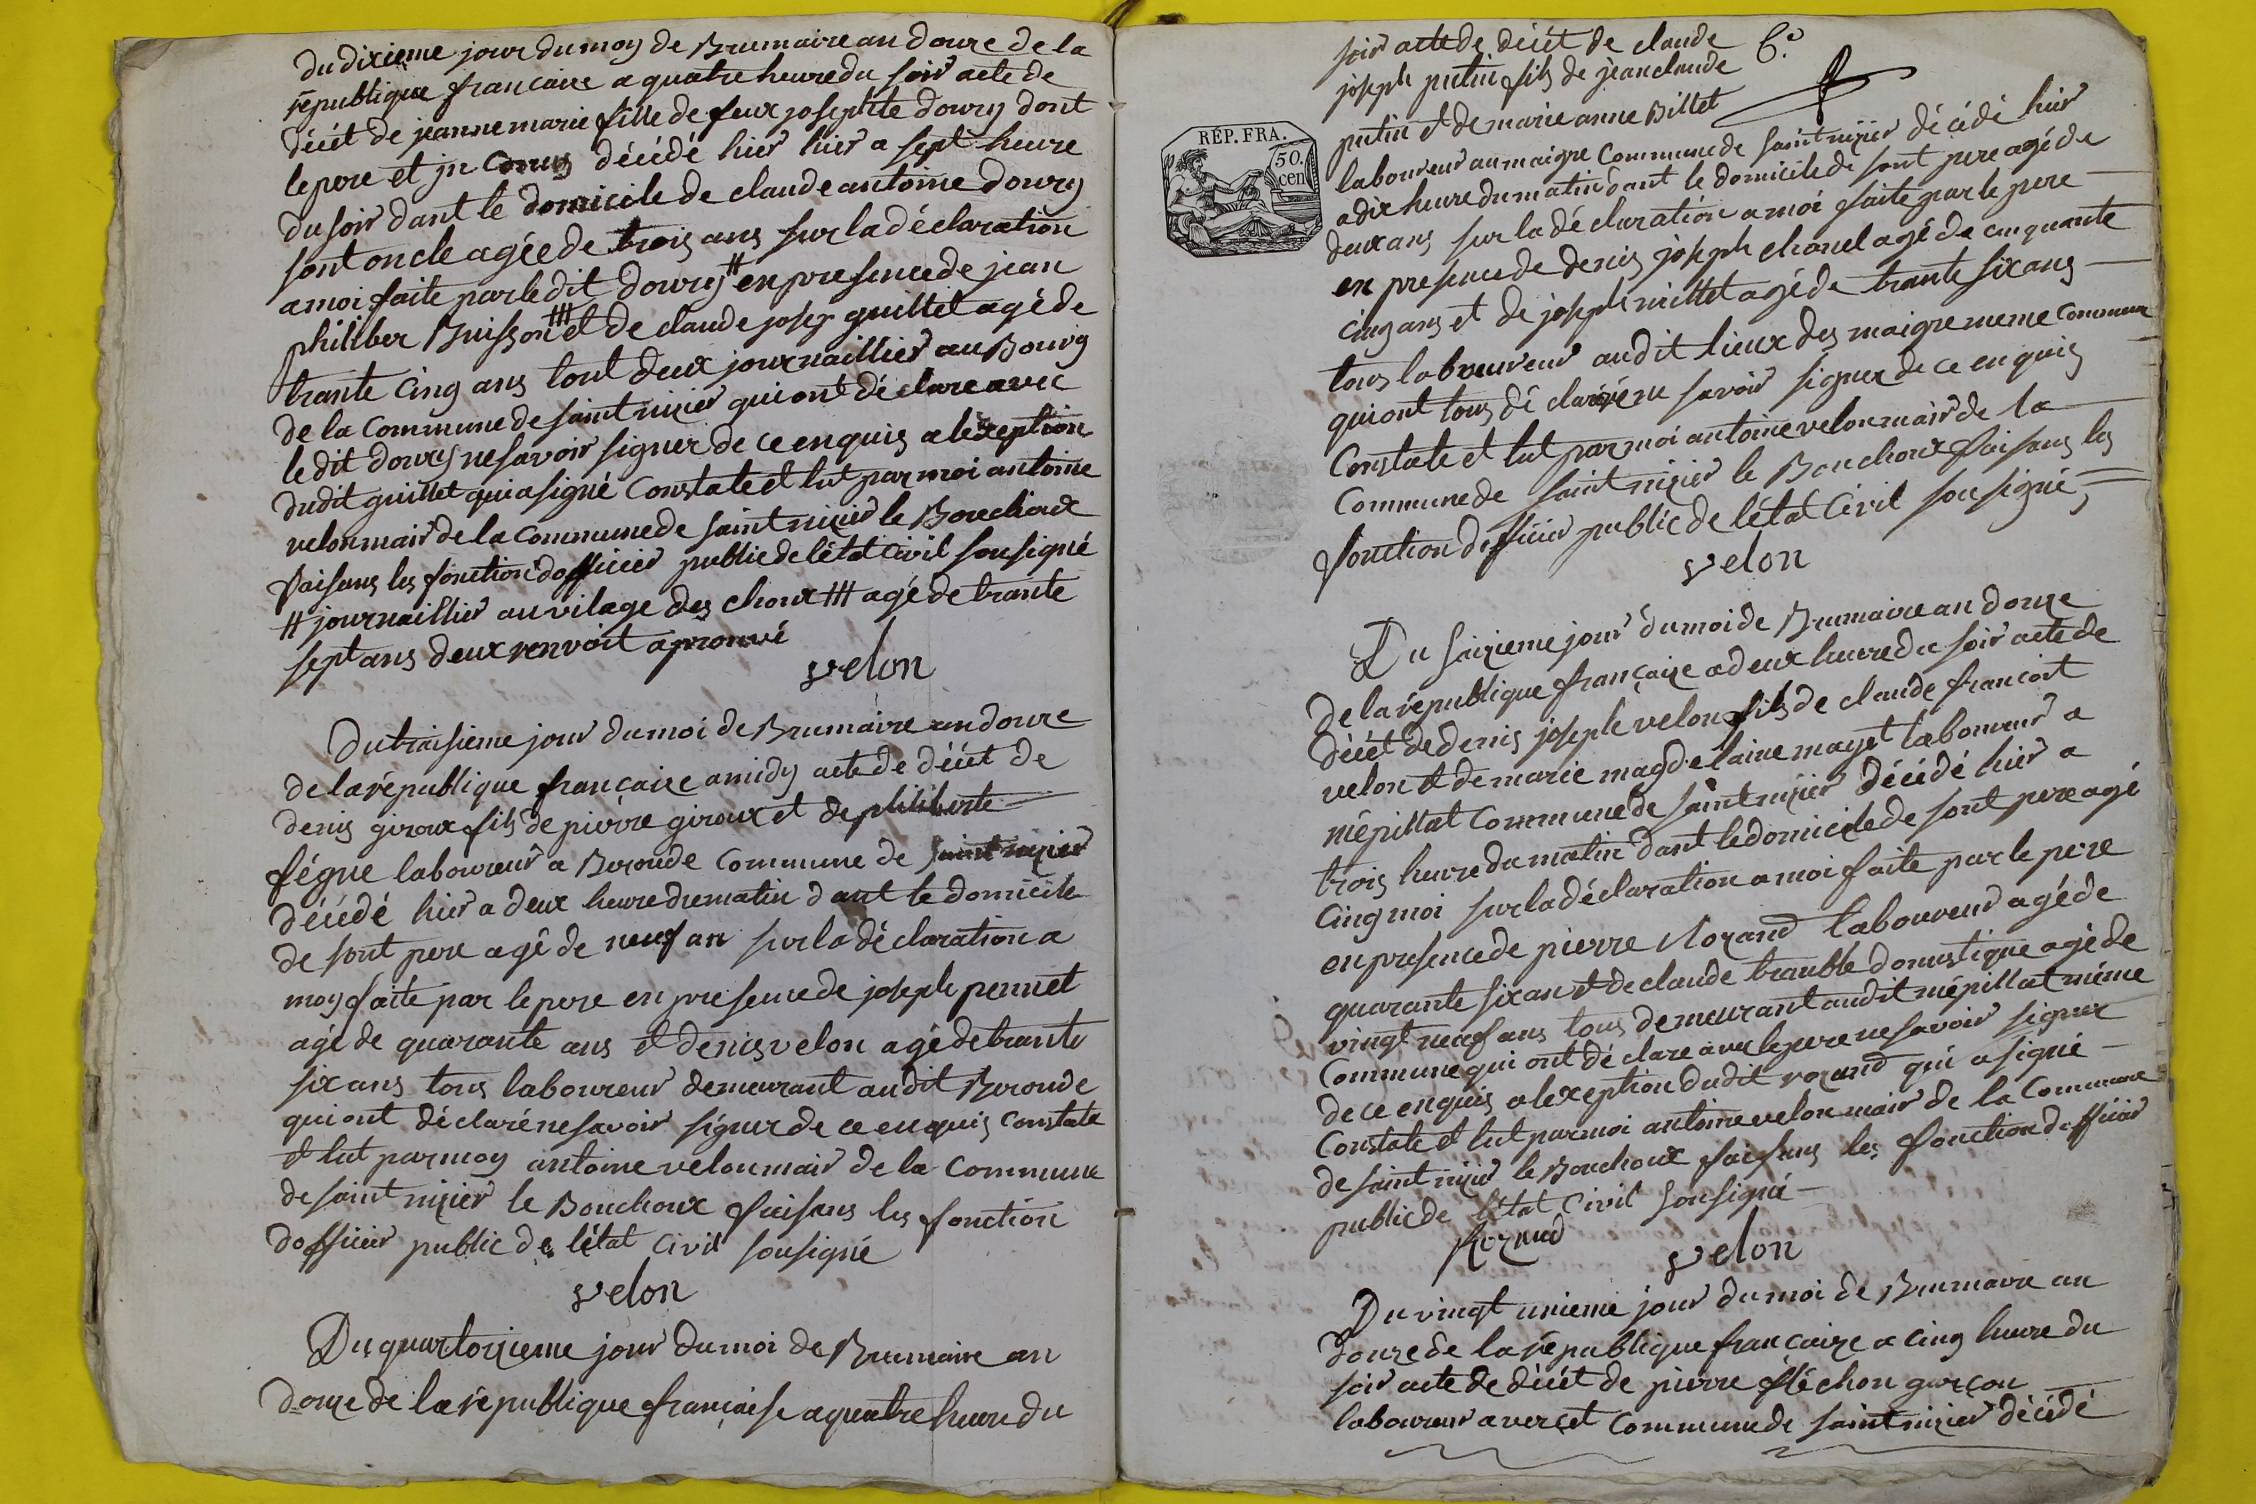 du dixieme jour du moy de Brumaire an douze de la
republique francaise a quatre heure du soir acte de
décét de jeanne marie fille de feux josephte doury dont
le pere et jn conus décédé hier hier a sept heure
du soir dant le domicile de claude antoine doury
sont oncle agée de trois ans sur la déclaration
a moi faite par le dit doury # en presence de jean
philiber Buisson ### et de claude josep guillet agé de
trante cinq ans tout deux journaillier au Bourg
de la commune de saint nizier qui ont déclare avec
le dit doury ne savoir signer de ce enquis a lexeption
dudit guillet qui a signé Constate et lut par moi antoine
velon mair de la commune de saint nizier le Bouchoux
faisans les fonction dofficier public de létat civil sousigné
# journaillier au vilage des choux ### agé de trante
sept ans deux renvoit aprouvé
velon
Du traisieme jour du moi de Brumaire an douze
de la république francaise a midy acte de décét de
denis giroux fils de pierre giroux et de philiberte
fégue laboureur a Beroude commune de saint nizier
décédé hier a deux heure du matin dant le domicile
de sont pere agé de neuf an sur la déclaration a
moy faite par le pere en presence de joseph pennet
agé de quarante ans et denis velon agé de trante
six ans tous laboureur demeurant au dit Beroude
qui ont déclaré ne savoir signer de ce enquis constate
et lut par moy antoine velon mair de la commune
de saint nizier le Bouchoux faisans les fonction
dofficier public de létat civil sousigné
velon
Du quartorzieme jour du moi de Brumaire an
douze de la république française a quatre heure du
soir acte de décét de claude 6.e
joseph putin fils de jean claude
putin et de marie anne Billet
RÉP. FRA.
50.
cen
laboureur au maigre commune de saint nizier décédé hier
a dix heure du matin dant le domicile de sont pere agé de
deux ans sur la déclaration a moi faite par le pere
en presence de denis joseph chanel agé de cinquante
cinq ans et de joseph millet agé de trante six ans
tous laboureur au dit lieux des maigre meme commune
qui ont tous déclaré ne savoir signer de ce enquis
Constate et lut par moi antoine velon mair de la
Commune de saint nizier le Bouchoux faisans les
fonction dofficier public de létat civil sousigné
velon
Du saizieme jour du moi de Brumaire an douze
de la république française a deux heure du soir acte de
décét de denis joseph velon fils de claude francoit
velon et de marie magdelaine mayet laboureur a
mépillat commune de saint nizier décédé hier a
trois heure du matin dant le domicile de sont pere agé
cinq moi sur la déclaration a moi faite par le pere
en presence de pierre Morand laboureur agé de
quarante six an et de claude trauble domestique agé de
vingt neuf ans tous demeurant au dit mépillat même
commune qui ont déclare avec le pere ne savoir signer
de ce enquis a lexeption dudit morand qui a signé
Constate et lut par moi antoine velon mair de la commune
de saint nizier le Bouchoux faisans les fonction dofficier
public de létat civil sousigné
velon
Du vingt unieme jour du moi de Brumaire an
douze de la république francaise a cinq heure du
soir acte de décét de pierre fléchon garçon
laboureur a verset commune de saint nizier décédé